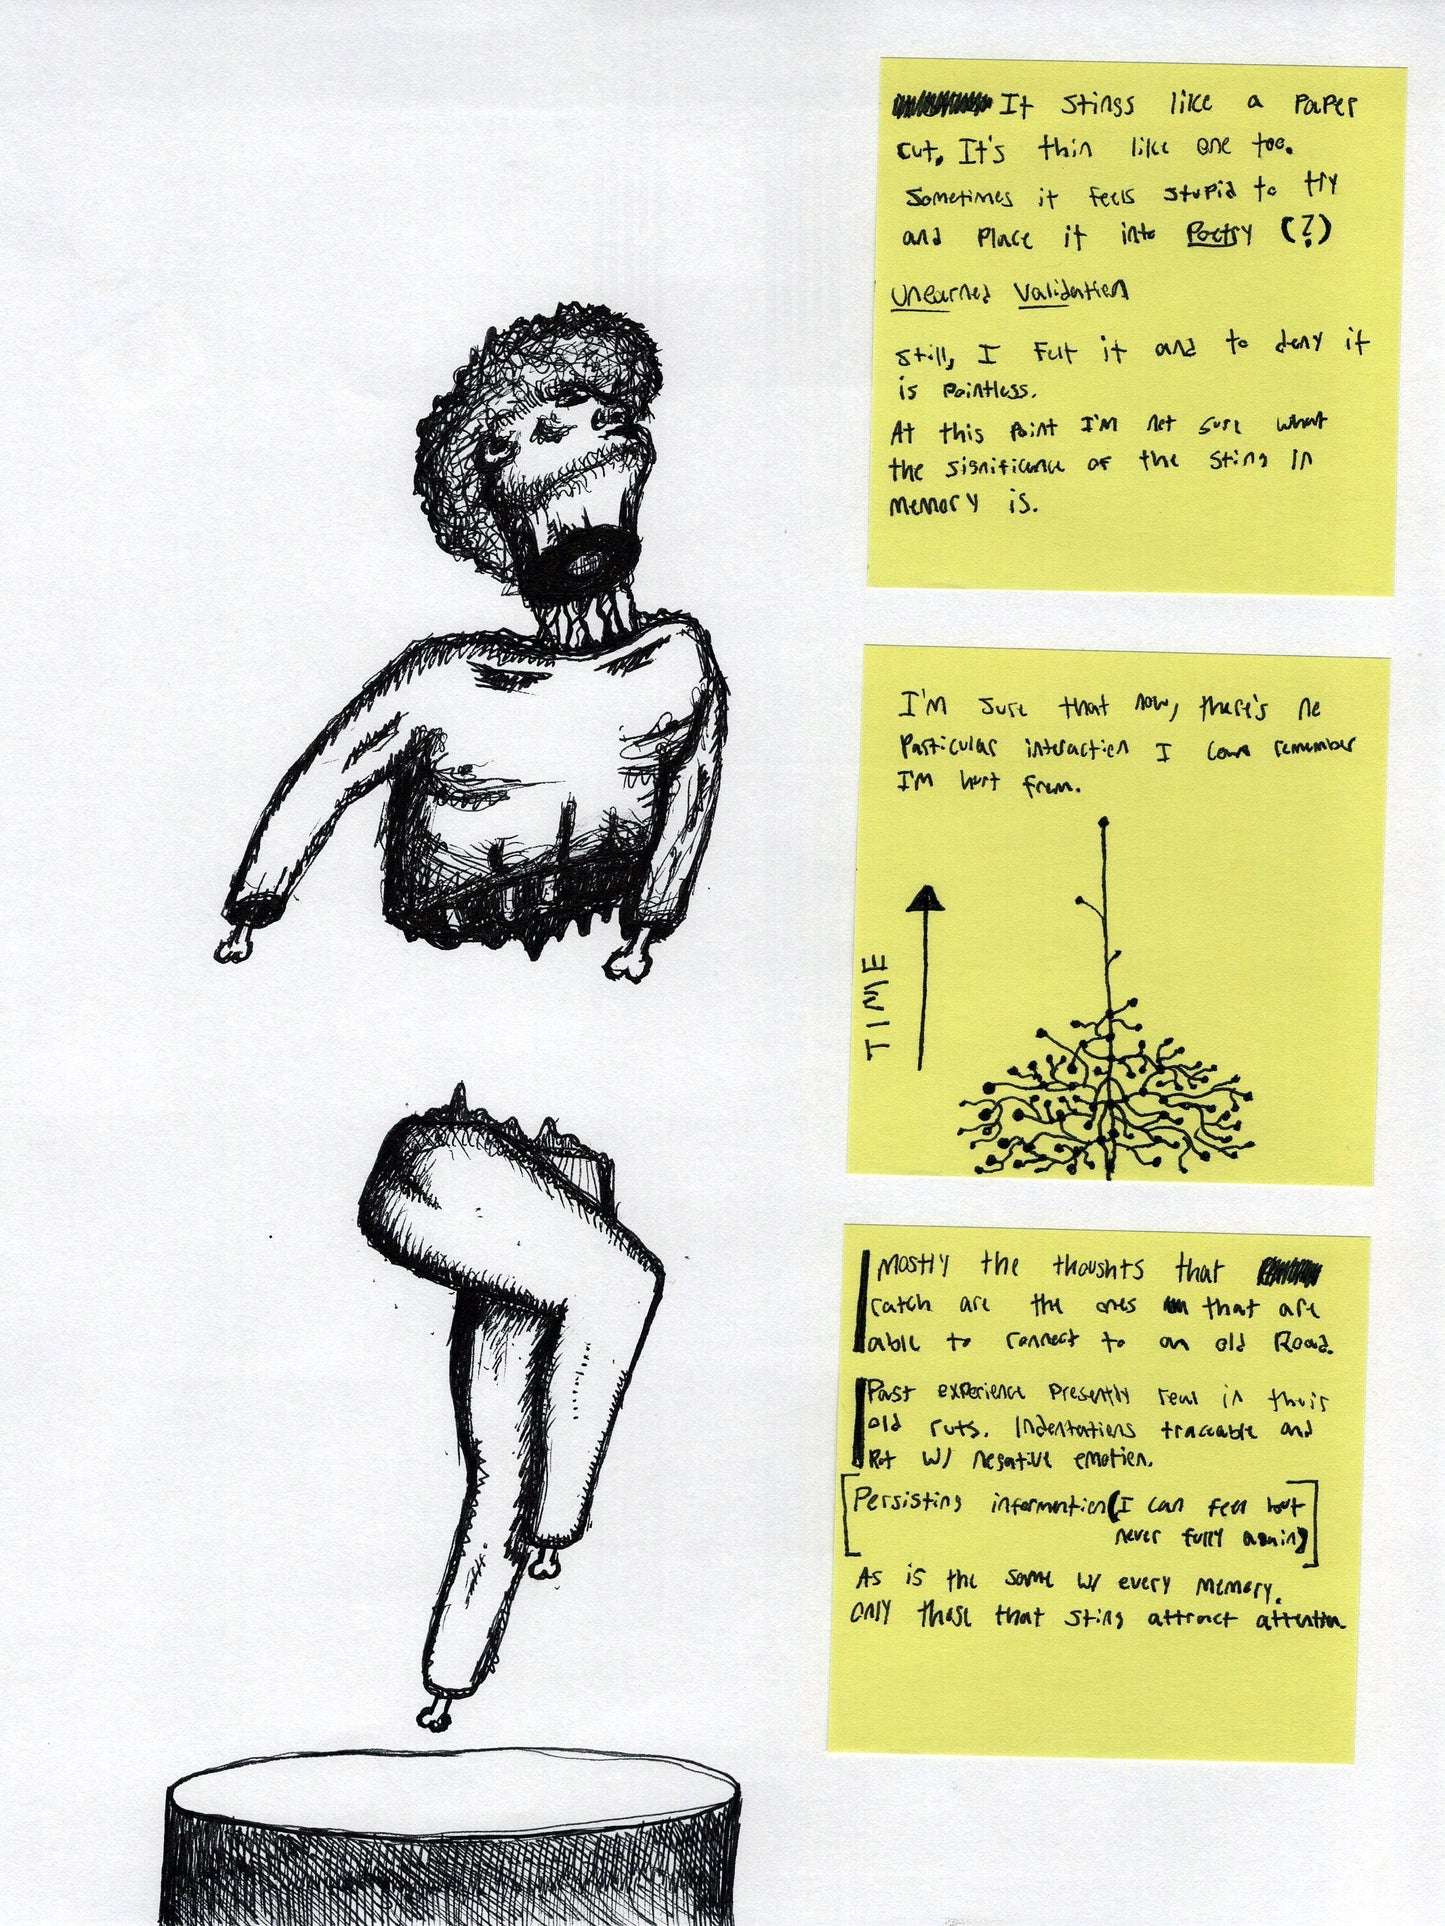 It stings like a paper
cut. It's thin like one too.
Sometimes it feels stupid to try
and place it into Poetry (?)
Unearned Validation
Still, I felt it and to deny it
is pointless.
At this point I'm not sure what
the significance of the sting in
memory is.
I'm sure that now, there's no
particular interaction I can remember
I'm hurt from.
TIME
Mostly the thoughts that
catch are the ones that are
able to connect to an old Road.
Past experience presently real in their
old ruts. Indentations traceable and
w/ negative emotion.
[Persisting information (I can feel but
never fully again)]
As is the same w/ every memory.
only those that sting attract attention.